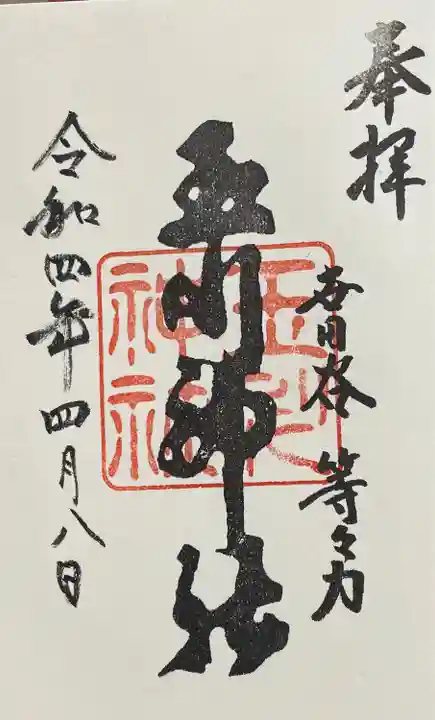 奉拝
世田谷 等々力
玉川神社
玉川
神社
令和四年四月八日